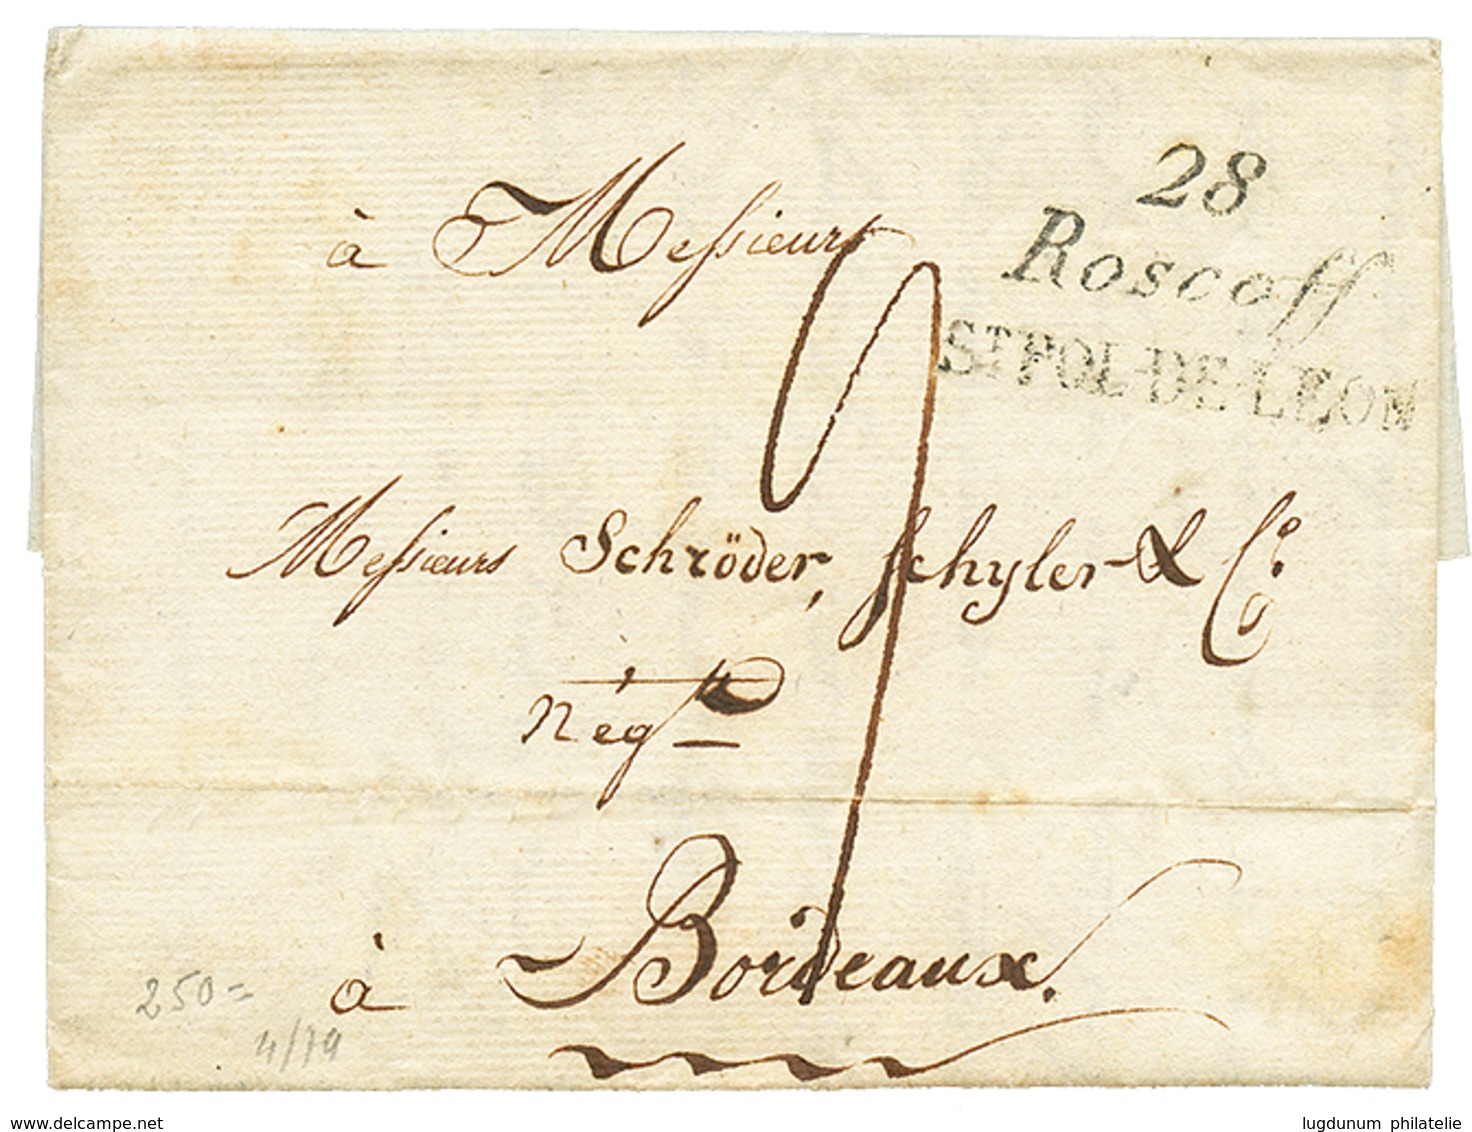 28
Roscoff
ST POL-DE-LEON
à Messieurs
9
Messieurs Schröder, Schyler & Co.
Négts
à Bordeaux.
250=
4/79
delcampe.net
lugdunum philatelie